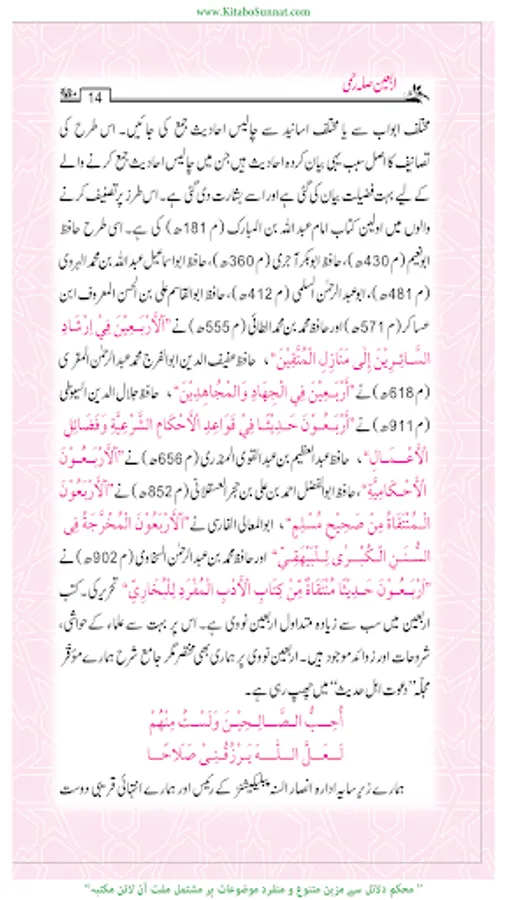 www.KitaboSunnat.com
اربعین صلہ رحمی
14
مختلف ابواب سے یا مختلف اسانید سے چالیس احادیث جمع کی جائیں۔ اس طرح کی
تصانیف کا اصل سبب یہی بیان کردہ احادیث ہیں جن میں چالیس احادیث جمع کرنے والے
کے لیے بہت فضیلت بیان کی گئی ہے اور اسے بشارت دی گئی ہے۔ اس طرز پر تصنیف کرنے
والوں میں اولین کتاب امام عبد اللہ بن المبارک (م 181ھ) کی ہے۔ اسی طرح حافظ
ابونعیم (م 430ھ)، حافظ ابوبکر آجری (م 360ھ)، حافظ ابواسماعیل عبد اللہ بن محمد الہروی
(م 481ھ)، ابوعبد الرحمٰن السلمی (م 412ھ)، حافظ ابوالقاسم علی بن الحسن المعروف ابن
عساکر (م 571ھ) اور حافظ محمد بن محمد الطائی (م 555ھ) نے ”اَلْأَرْبَعِيْنَ فِيْ إِرْشَادِ
السَّائِرِيْنَ إِلَى مَنَازِلِ الْمُتَّقِيْنَ“، حافظ عفیف الدین ابوالفرج محمد عبد الرحمٰن المقری
(م 618ھ) نے ”أَرْبَعِيْنَ فِي الْجِهَادِ وَالْمُجَاهِدِيْنَ“، حافظ جلال الدین السیوطی
(م 911ھ) نے ”أَرْبَعُوْنَ حَدِيْثًا فِيْ قَوَاعِدِ الْأَحْكَامِ الشَّرْعِيَّةِ وَفَضَائِلِ
الْأَعْمَالِ“، حافظ عبد العظیم بن عبد القوی المنذری (م 656ھ) نے ”اَلْأَرْبَعُوْنَ
الْأَحْكَامِيَّةِ“، حافظ ابوالفضل احمد بن علی بن حجر العسقلانی (م 852ھ) نے ”اَلْأَرْبَعُوْنَ
الْمُنْتَقَاةُ مِنْ صَحِيْحِ مُسْلِمٍ“، ابوالمعالی الفارسی نے ”اَلْأَرْبَعُوْنَ الْمُخَرَّجَةُ فِي
السُّنَنِ الْكُبْرٰى لِلْبَيْهَقِيِّ“ اور حافظ محمد بن عبد الرحمٰن السخاوی (م 902ھ) نے
”أَرْبَعُوْنَ حَدِيْثًا مُنْتَقَاةٌ مِّنْ كِتَابِ الْأَدَبِ الْمُفْرَدِ لِلْبُخَارِيِّ“ تحریر کی۔ کتب
اربعین میں سب سے زیادہ متداول اربعین نووی ہے۔ اس پر بہت سے علماء کے حواشی،
شروحات اور زوائد موجود ہیں۔ اربعین نووی پر ہماری بھی مختصر مگر جامع شرح ہمارے مؤقر
مجلّہ ”دعوت اہل حدیث“ میں چھپ رہی ہے۔
أُحِبُّ الصَّالِحِيْنَ وَلَسْتُ مِنْهُمْ
لَعَلَّ اللّٰهَ يَرْزُقُنِيْ صَلَاحًا
ہمارے زیر سایہ ادارہ انصار السنہ پبلیکیشنز کے رئیس اور ہمارے انتہائی قریبی دوست
"محکم دلائل سے مزین متنوع و منفرد موضوعات پر مشتمل مفت آن لائن مکتبہ"